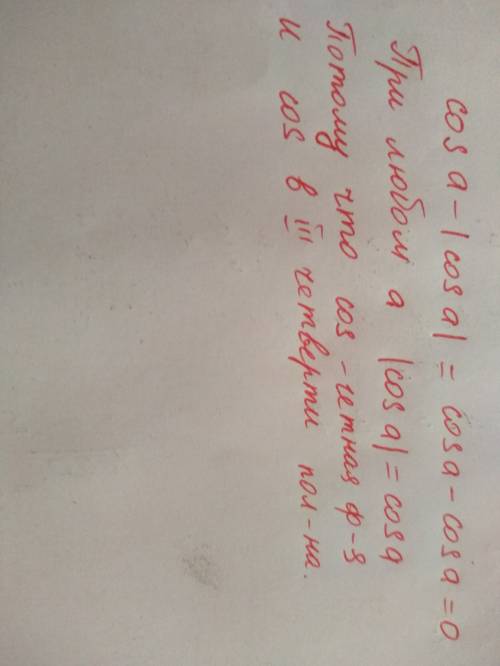 cos a - |cos a| = cos a - cos a = 0
При любом a |cos a| = cos a
Потому что cos - четная ф-я
и cos в III четверти пол-на.